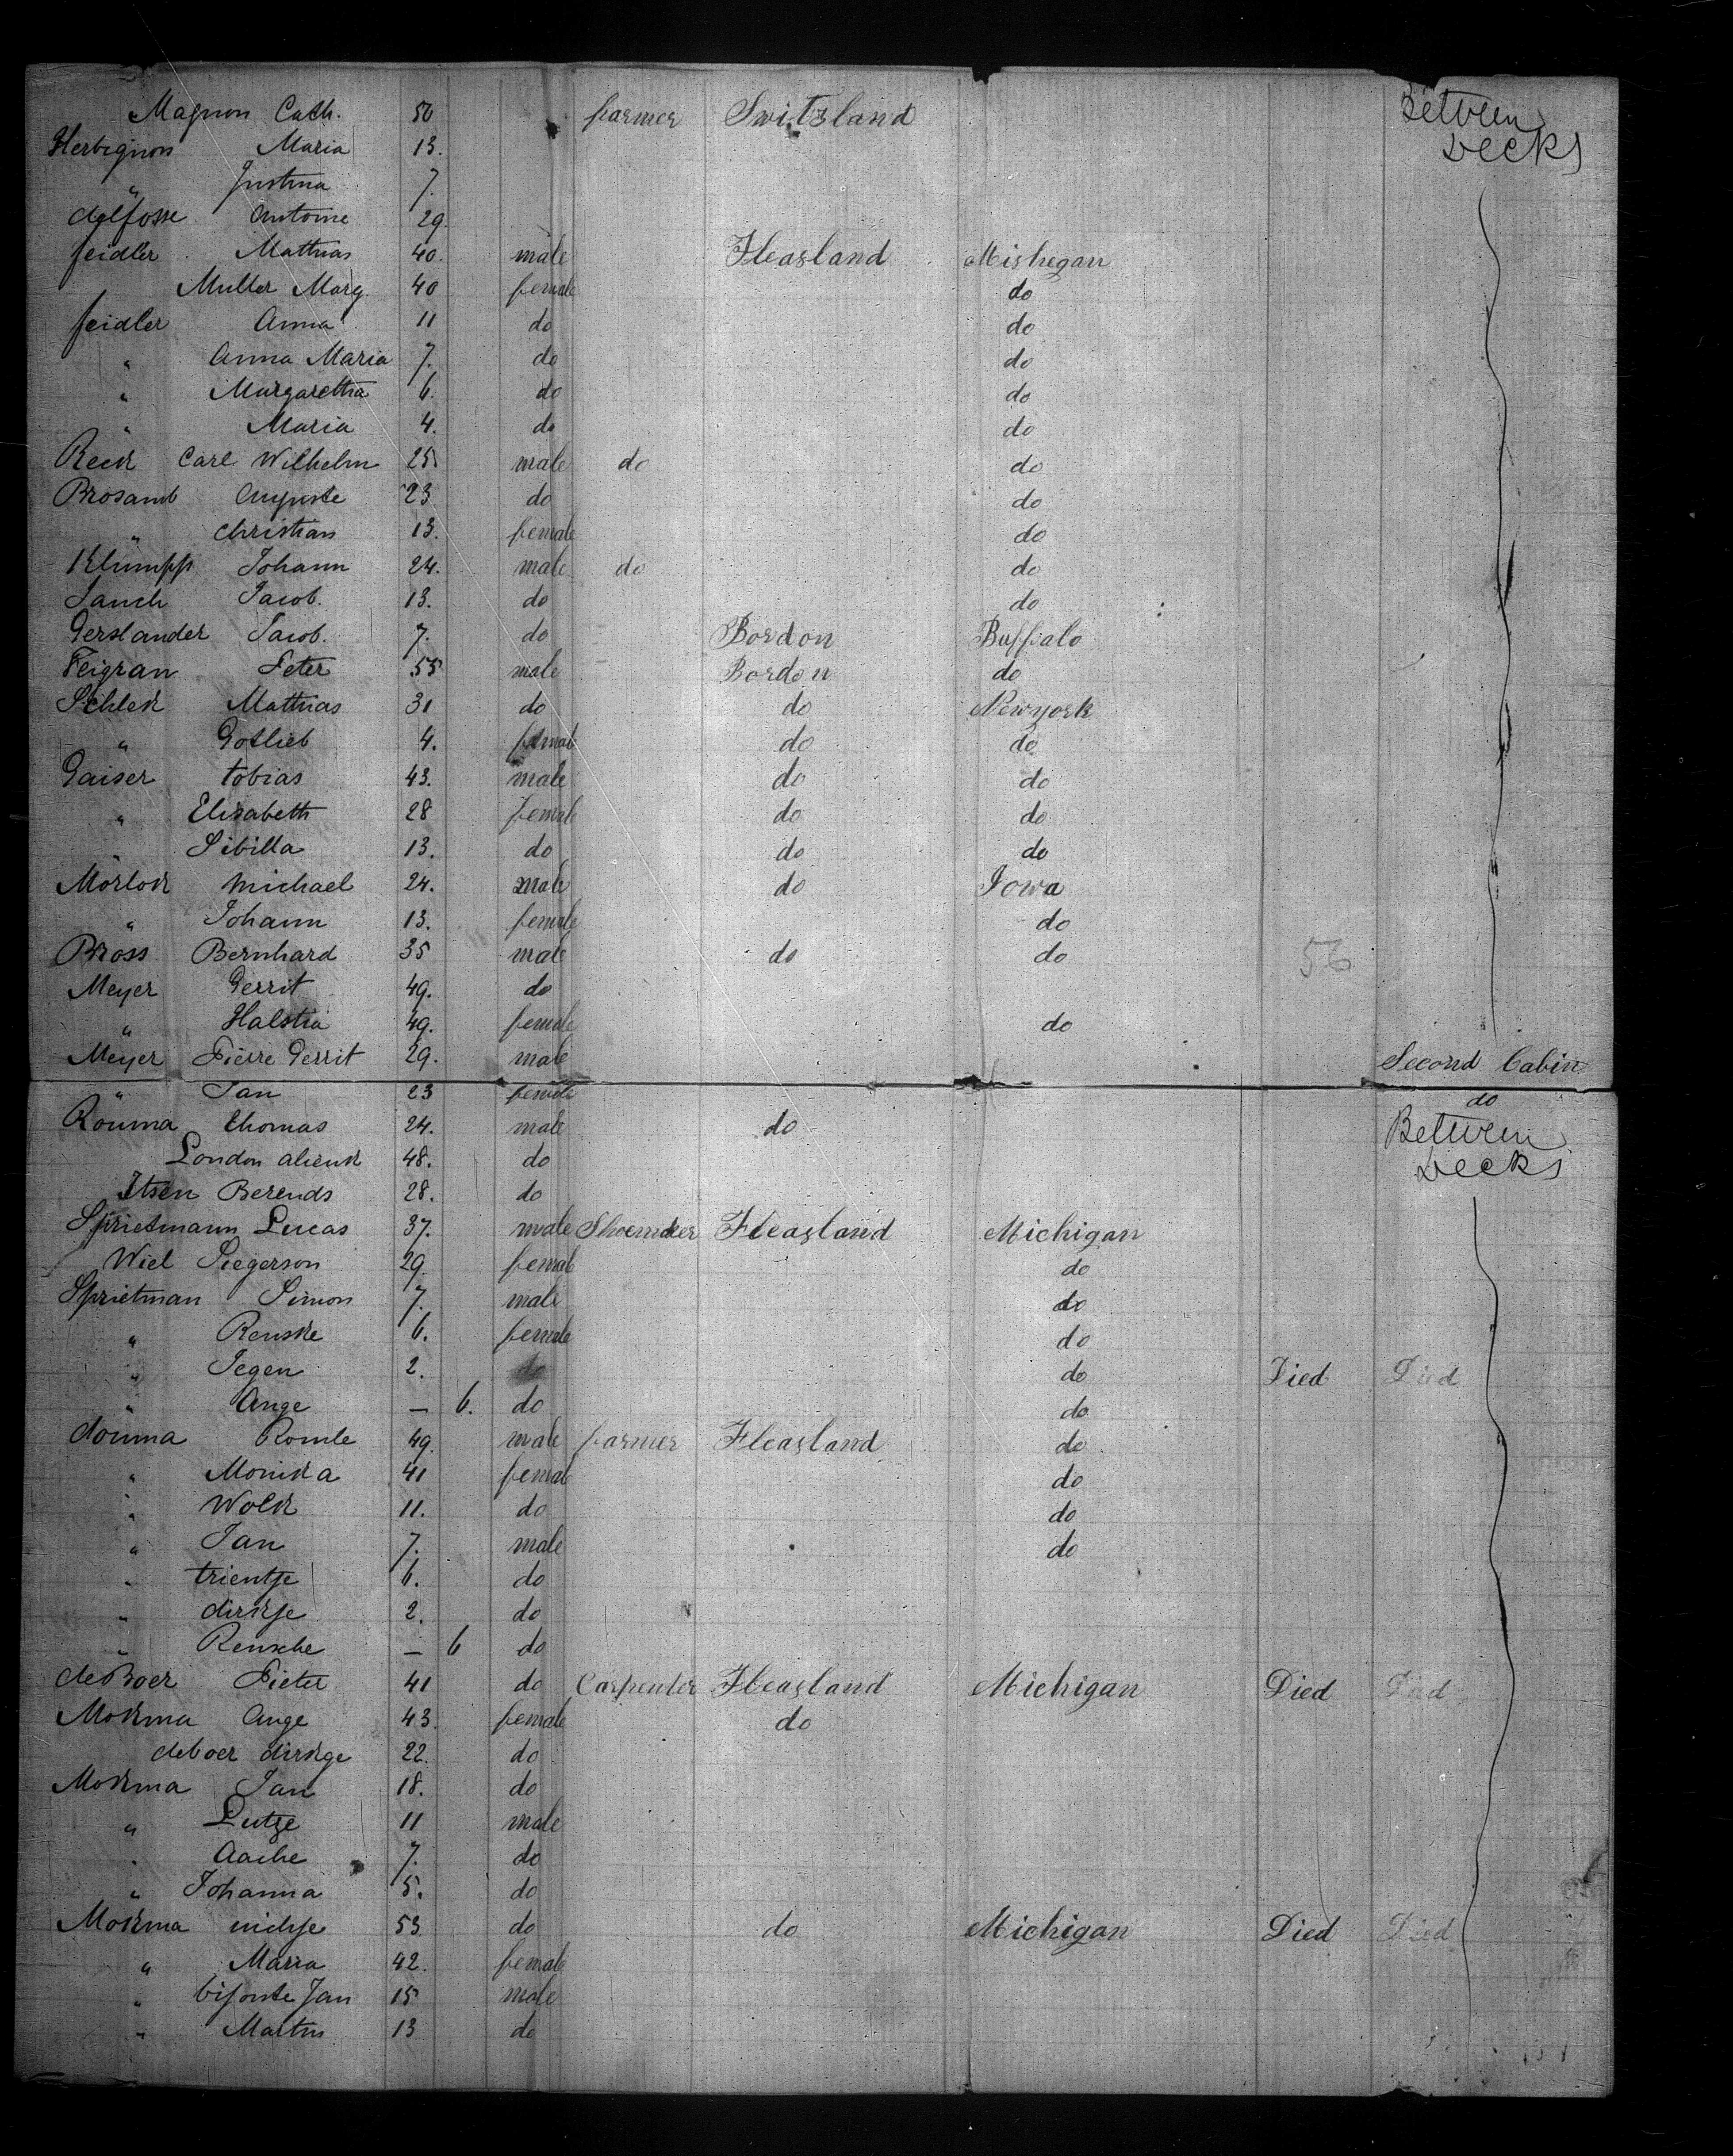 Magnon Cath. 50 farmer Switzland Between
Herbignon Maria 13. Decks
" Justina 7.
delfosse Antoine 29
feidler Mathias 40. male Fleasland Mishegan
Muller Marg. 40 female do
feidler Anna 11 do do
" Anna Maria 7. do do
" Margaretha 6. do do
" Maria 4. do do
Reck Carl Wilhelm 25 male do do
Brosamb Auguste 23 do do
" christian 13. female do
Klumpp Johann 24. male do do
Sanch Jacob. 13. do do
Gerslander Jacob. 7. do Bordon Buffalo
Feigran Peter 55 male Bordon do
Schlek Mathias 31 do do Newyork
" Gotlieb 4. femal do do
Gaiser tobias 43. male do do
" Elisabeth 28 female do do
" Sibilla 13. do do do
Morlok michael 24. male do Iowa
" Johann 13. female do
Bross Bernhard 35 male do do 56
Meyer Gerrit 49. do
" Halstia 49. female do
Meyer Pierre Gerrit 29. male Second Cabin
" Jan 23 female do
Rouma thomas 24. male do Between
London alienk 48. do Decks
Itsen Berends 28. do
Sprietmann Lucas 37. male Shoemaker Fleasland Michigan
Wiel Siegerson 29. femal do
Sprietman Simon 7. male do
" Renske 6. female do
" Jegen 2. do do Died Died
" Ange — 6. do do
douma Romle 49. male farmer Fleasland do
" Monika 41 femal do
" Wolk 11. do do
" Jan 7. male do
" trientje 6. do
" dirkje 2. do
" Rensche — 6 do
de Boer Pieter 41 do Carpenter Fleasland Michigan Died Died
Mokma Ange 43. female do
deboer dirkge 22. do
Mokma Jan 18. do
" Lutge 11 male
" Aache 7. do
" Johanna 5. do
Mokma 53. do do Michigan Died Died
" Maria 42. female
" Jan 15 male
" Martin 13 do